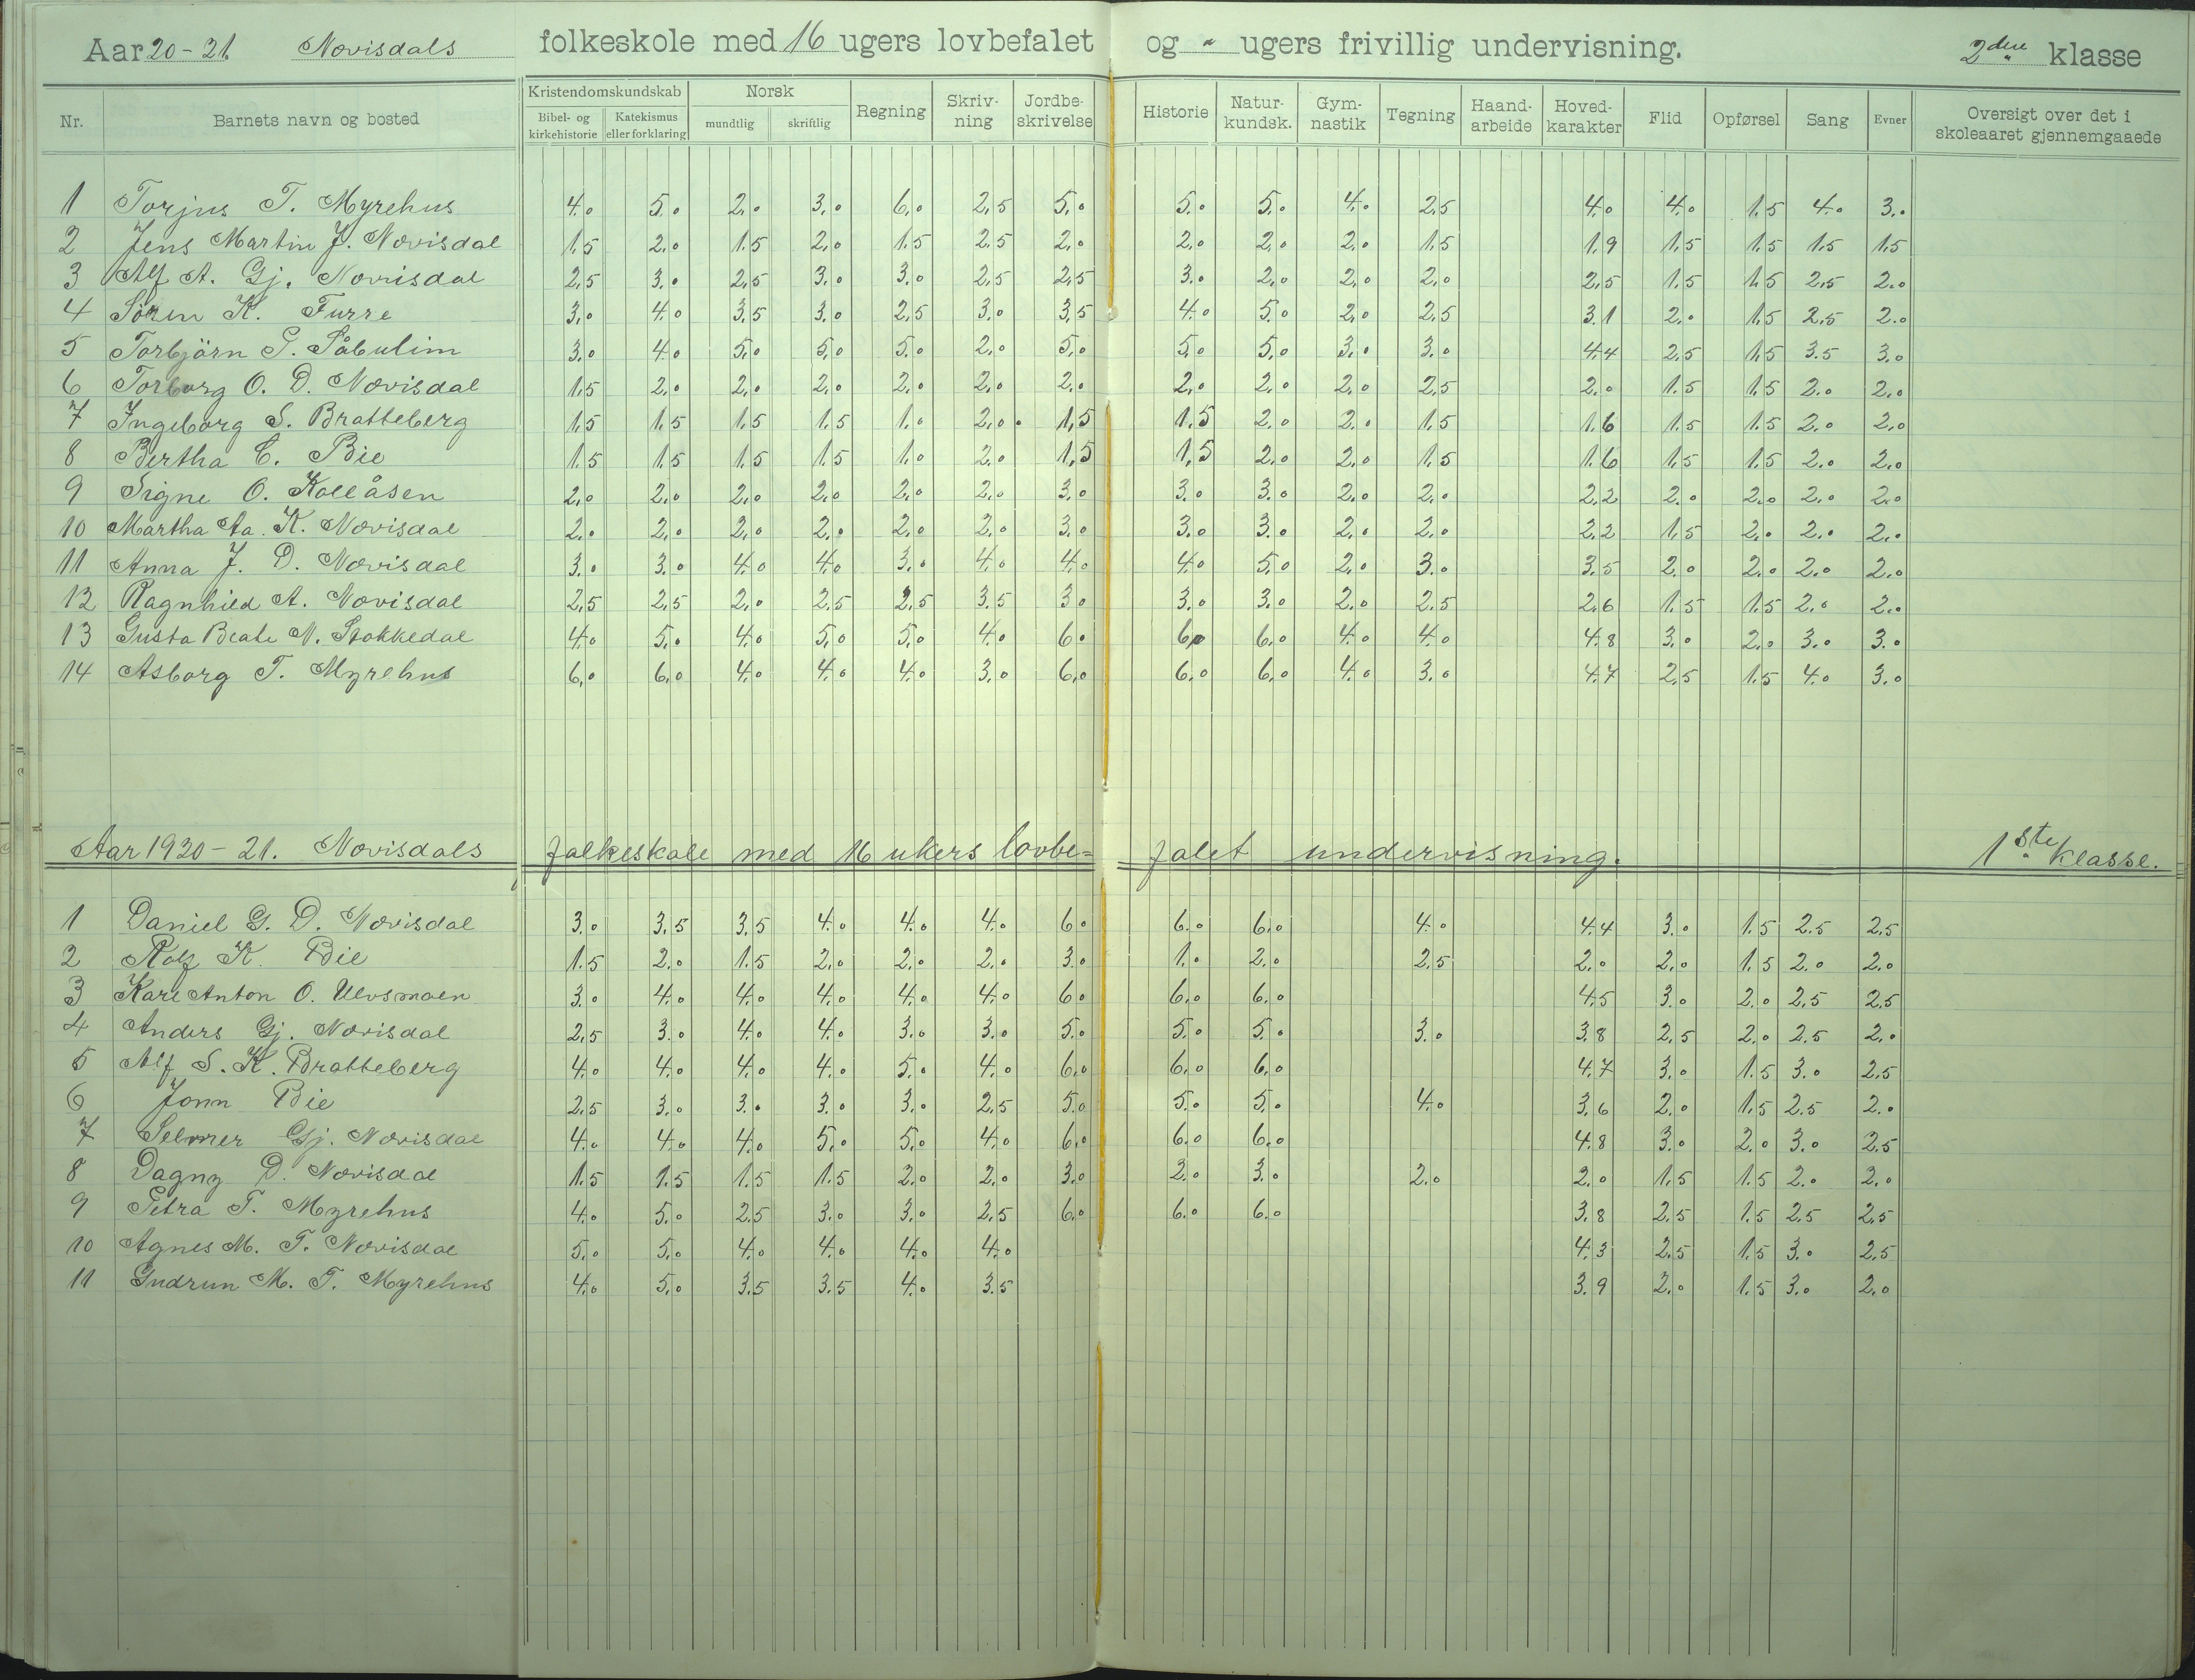 Aar 20-21. Novisdals folkeskole med 16 ugers lovbefalet og " ugers frivillig undervisning. 2den klasse
Nr. Barnets navn og bosted Kristendomskundskab Bibel- og kirkehistorie Katekismus eller forklaring Norsk mundtlig skriftlig Regning Skriv-ning Jordbe-skrivelse Historie Natur-kundsk. Gym-nastik Tegning Haand-arbeide Hoved-karakter Flid Opførsel Sang Evner Oversigt over det i skoleaaret gjennemgaaede
1 Torjus T. Myrehus 4.0 5.0 2.0 3.0 6.0 2,5 5.0 5.0 5.0 4.0 2,5 4.0 4.0 1.5 4.0 3.0
2 Jens Martin J. Novisdal 1.5 2.0 1.5 2.0 1.5 2.5 2.0 2.0 2.0 2.0 1.5 1.9 1.5 1.5 1.5 1.5
3 Alf A. Gj. Novisdal 2,5 3.0 2,5 3.0 3.0 2,5 2,5 3.0 2.0 2.0 2.0 2,5 1.5 1.5 2,5 2.0
4 Sören K. Furre 3.0 4.0 3.5 3.0 2,5 3.0 3.5 4.0 5.0 2.0 2,5 3.1 2.0 1.5 2.5 2.0
5 Torbjörn G. Påbulim 3.0 4.0 5.0 5.0 5.0 2.0 5.0 5.0 5.0 3.0 3.0 4.4 2.5 1.5 3.5 3.0
6 Torborg O. D. Novisdal 1.5 2.0 2.0 2.0 2.0 2.0 2.0 2.0 2.0 2.0 2.5 2.0 1.5 1.5 2.0 2.0
7 Ingeborg S. Bratteberg 1.5 1.5 1.5 1.5 1.0 2.0 1,5 1.5 2.0 2.0 1.5 1.6 1.5 1.5 2.0 2.0
8 Bertha C. Bie 1.5 1.5 1.5 1.5 1.0 2.0 1,5 1,5 2.0 2.0 1.5 1.6 1.5 1.5 2.0 2.0
9 Signe O. Kollåsen 2.0 2.0 2.0 2.0 2.0 2.0 3.0 3.0 3.0 2.0 2.0 2.2 2.0 2.0 2.0 2.0
10 Martha Aa. K. Novisdal 2.0 2.0 2.0 2.0 2.0 2.0 3.0 3.0 3.0 2.0 2.0 2.2 1.5 2.0 2.0 2.0
11 Anna J. D. Novisdal 3.0 3.0 4.0 4.0 3.0 4.0 4.0 4.0 5.0 2.0 3.0 3.5 2.0 2.0 2.0 2.0
12 Ragnhild A. Novisdal 2,5 2,5 2.0 2.5 2,5 3.5 3.0 3.0 3.0 2.0 2.5 2.6 1.5 1.5 2.0 2.0
13 Gusta Beate N. Stokkedal 4.0 5.0 4.0 5.0 5.0 4.0 6.0 6.0 6.0 4.0 4.0 4.8 3.0 2.0 3.0 3.0
14 Asborg T. Myrehus 6.0 6.0 4.0 4.0 4.0 3.0 6.0 6.0 6.0 4.0 3.0 4.7 2.5 1.5 4.0 3.0
Aar 1920-21. Novisdals folkeskole med 16 ukers lovbe=falet undervisning. 1ste klasse.
1 Daniel G. D. Novisdal 3.0 3.5 3.5 4.0 4.0 4.0 6.0 6.0 6.0 4.0 4.4 3.0 1.5 2.5 2.5
2 Rolf K. Bie 1.5 2.0 1.5 2.0 2.0 2.0 3.0 1.0 2.0 2.5 2.0 2.0 1.5 2.0 2.0
3 Karl Anton O. Ulvsmoen 3.0 4.0 4.0 4.0 4.0 4.0 6.0 6.0 6.0 4.5 3.0 2.0 2.5 2,5
4 Anders Gj. Novisdal 2,5 3.0 4.0 4.0 3.0 3.0 5.0 5.0 5.0 3.0 3.8 2,5 2.0 2.5 2.0
5 Alf S. K. Bratteberg 4.0 4.0 4.0 4.0 5.0 4.0 6.0 6.0 6.0 4.7 3.0 1.5 3.0 2.5
6 Jonn Bie 2.5 3.0 3.0 3.0 3.0 2,5 5.0 5.0 5.0 4.0 3.6 2.0 1.5 2.5 2.0
7 Selmer Gj. Novisdal 4.0 4.0 4.0 5.0 5.0 4.0 6.0 6.0 6.0 4.8 3.0 2.0 3.0 2.5
8 Dagny D. Novisdal 1.5 1.5 1.5 1.5 2.0 2.0 3.0 2.0 3.0 2.0 2.0 1.5 1.5 2.0 2.0
9 Petra T. Myrehus 4.0 5.0 2.5 3.0 3.0 2.5 6.0 6.0 6.0 3.8 2.5 1.5 2.5 2.5
10 Agnes M. T. Novisdal 5.0 5.0 4.0 4.0 4.0 4.0 4.3 2.5 1.5 3.0 2.5
11 Gudrun M. T. Myrehus 4.0 5.0 3.5 3.5 4.0 3.5 3.9 2.0 1.5 3.0 2.0